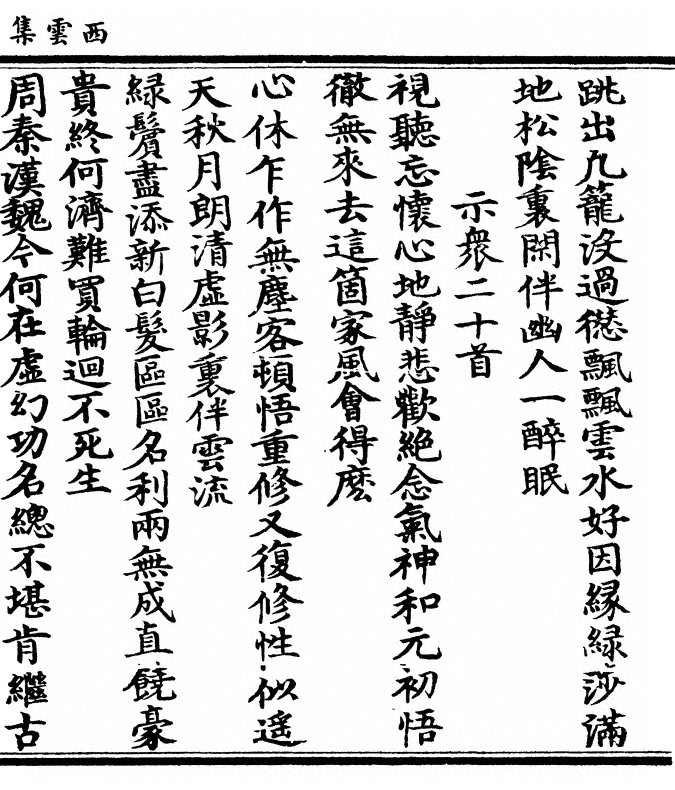 西雲集
跳出凡籠没過𠎝飄飄雲水好因緣綠莎滿
地松陰裏閑伴幽人一醉眠
示衆二十首
視聽忘懷心地靜悲歡絶念氣神和元初悟
徹無來去這箇家風會得麽
心休乍作無塵客頓悟重修又復修性似遥
天秋月朗清虛影裏伴雲流
緑鬢盡添新白髮區區名利兩無成直饒豪
貴終何濟難買輪迴不死生
周秦漢魏今何在虛幻功名總不堪肯繼古